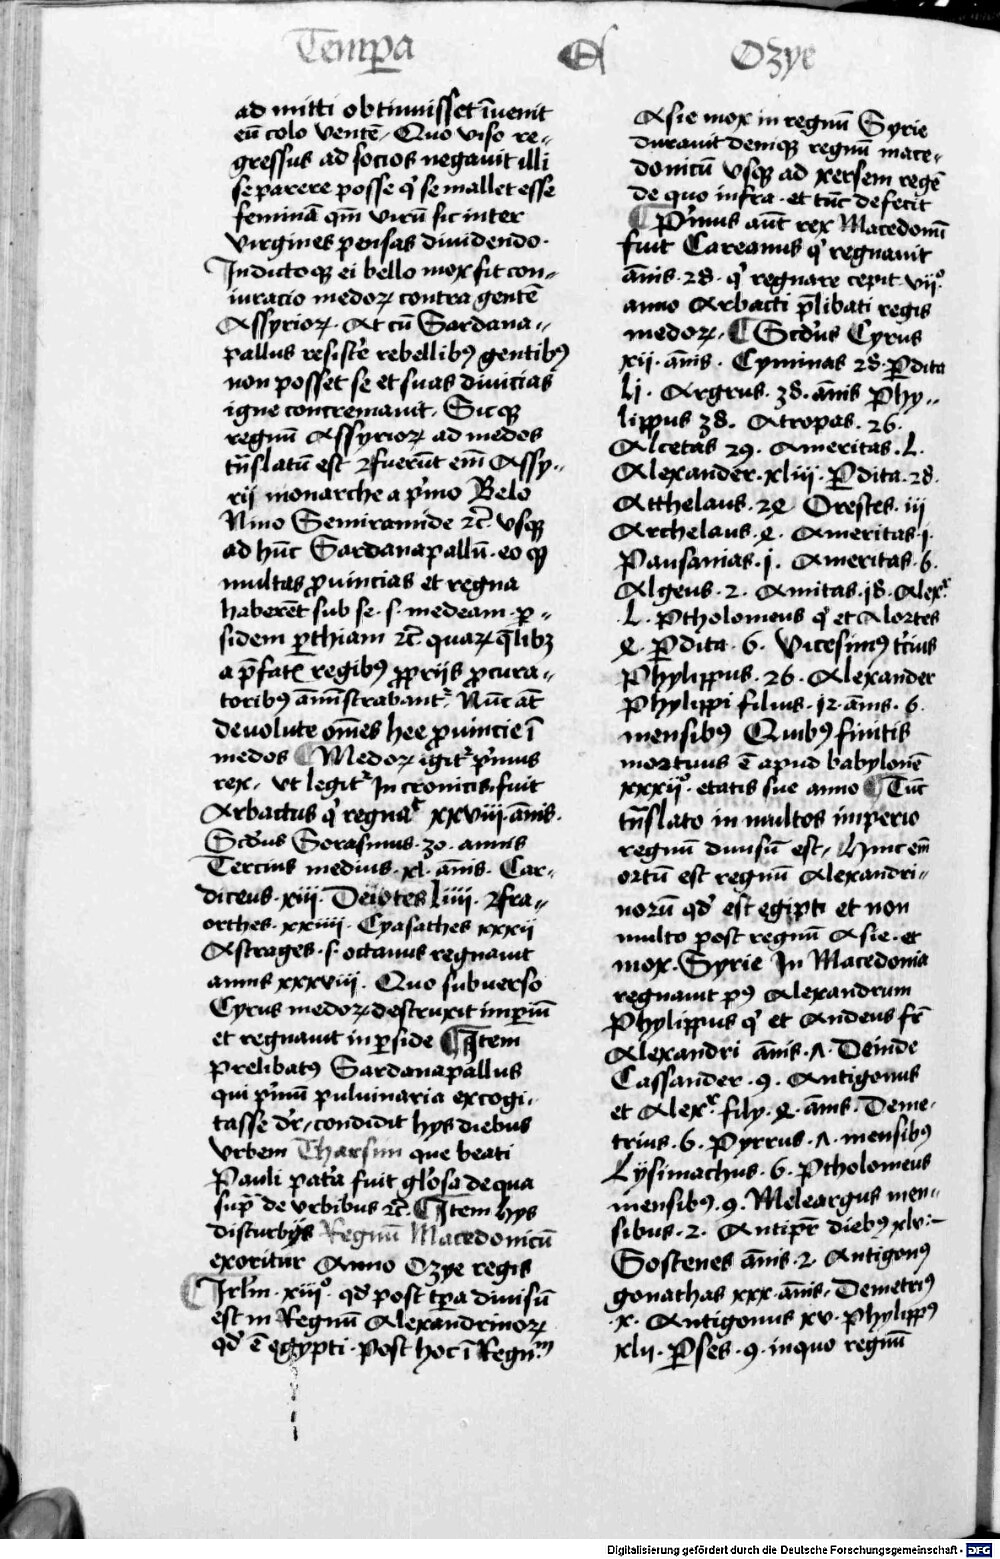 Temp̄a
Ozye
ad mitti obtinuisset īuenit
eū colo ventē. Quo viso re-
gressus ad socios negauit illi
se parere posse q̓ se mallet esse
feminā qm̄ virū sic inter
virgines pensas diuidendo.
Indictoqꝫ ei bello mox fit con-
iuracio medoꝝ contra gentē
Assyrioꝝ. At cū Sardana-
pallus resistē rebellibꝰ gentibꝰ
non posset se et suas diuicias
igne concremauit. Sicqꝫ
regnū Assyrioꝝ ad medos
tn̄slatū est ⁊ fuerūt em̄ Assy-
rij monarche a p̓mo Belo
Nino Semiramide ⁊c̄ vsqꝫ
ad hūc Sardanapallū. eo qꝫ
multas ꝓuincias et regna
haberēt sub se. s. medeam. ꝑ-
sidem ꝑthiam ⁊c̄ quaꝝ q̄libꝫ
a p̄fatꝭ regibꝰ ꝓprijs ꝓcura-
toribꝰ am̄instrabantᷣ. Nūc at̄
deuolute om̄es hee ꝓuincie ī
medos ¶ Medoꝝ igitᷣ p̓mus
rex. vt legitᷣ In cronicis, fuit
Arbactus q̓ regnaᷓ xxviii. ānis.
Scd̓us Sorasinus. 30. annis
Tercius medius. xl. ānis. Car-
diceus. xiii. Deiotes liiii. ⁊ fra-
orthes. xxiiii. Cyasathes xxxii
Astrages. s. octauus regnauit
annis xxxviii. Quo subuerso
Cyrus medoꝝ destruxit imꝑiū
et regnauit in ꝑside ¶ Item
prelibatꝰ Sardanapallus
qui p̓mū puluinaria excogi-
tasse d̓r, condidit hys diebus
vrbem Tharsim que beati
Pauli pat̓a fuit gl̓osa de qua
sup̄ de vrbibus ⁊c̄. ¶ Item hys
disturbijs Regnū Macedonicū
exoritur Anno Ozye regis
¶ Irl̓m. xiii°. qd̓ post tp̄a diuisū
est in Regnū Alexandrinoꝝ
qd̓ ē egypti. Post hoc ī Regnū
Asie mox in regnū Syrie
durauit deniqꝫ regnū mace-
donicū vsqꝫ ad xersem regē
de quo infra. et tūc defecit
¶ P̓mus aūt rex Macedonū
fuit Careanus q̓ regnauit
ānis. 28. q̓ regnare cepit vii°.
anno Arbacti p̄libati regis
medoꝝ. ¶ Scd̓us Cyrus
xii. ānis. Cyminas 28. Ꝑdita
Lj. Argrus. 38. ānis Phy-
lippus 38. Atropas. 26.
Alcetas 29. Ameritas. L.
Alexander. xliii. Ꝑdita. 28.
Atthelaus. 24 Orestes. iij
Archelaus. 4. Ameritas. j.
Pausanias. j. Ameritas. 6.
Algeus. 2. Amitas. 18. Alexᷣ
L. Ptholomeus q̓ et Alortes
4. Ꝑdita. 6. Vicesimꝰ t̓cius
Phylippus. 26. Alexander
Phylippi filius. 12. ānis. 6.
mensibꝰ Quibꝰ finitis
mortuus ē apud babylonē
xxxii°. etatis sue anno ¶ Tūc
tn̄slato in multos imperio
regnū diuisū est. Hinc em̄
ortū est regnū Alexandri-
norū qd̓ est egipti et non
multo post regnū Asie. et
mox. Syrie In Macedonia
regnauit pꝰ Alexandrum
Phylippus q̓ et Andeus fr̄
Alexandri ānis. 7. Deinde
Cassander. 9. Antigonus
et Alexᷣ filij. 4. ānis. Deme-
trius. 6. Pyrrus. 7. mensibꝰ
Lysimachus. 6. Ptholomeus
mensibꝰ. 9. Meleargus men-
sibus. 2. Antip̄r diebꝰ xlv.
Sostenes ānis. 2. Antigonꝰ
gonathas xxx. ānis. Demetriꝰ
.x. Antigonus xv. Phylippꝰ
xlii. Ꝑses. 9. in quo regnū
Digitalisierung gefördert durch die Deutsche Forschungsgemeinschaft - DFG